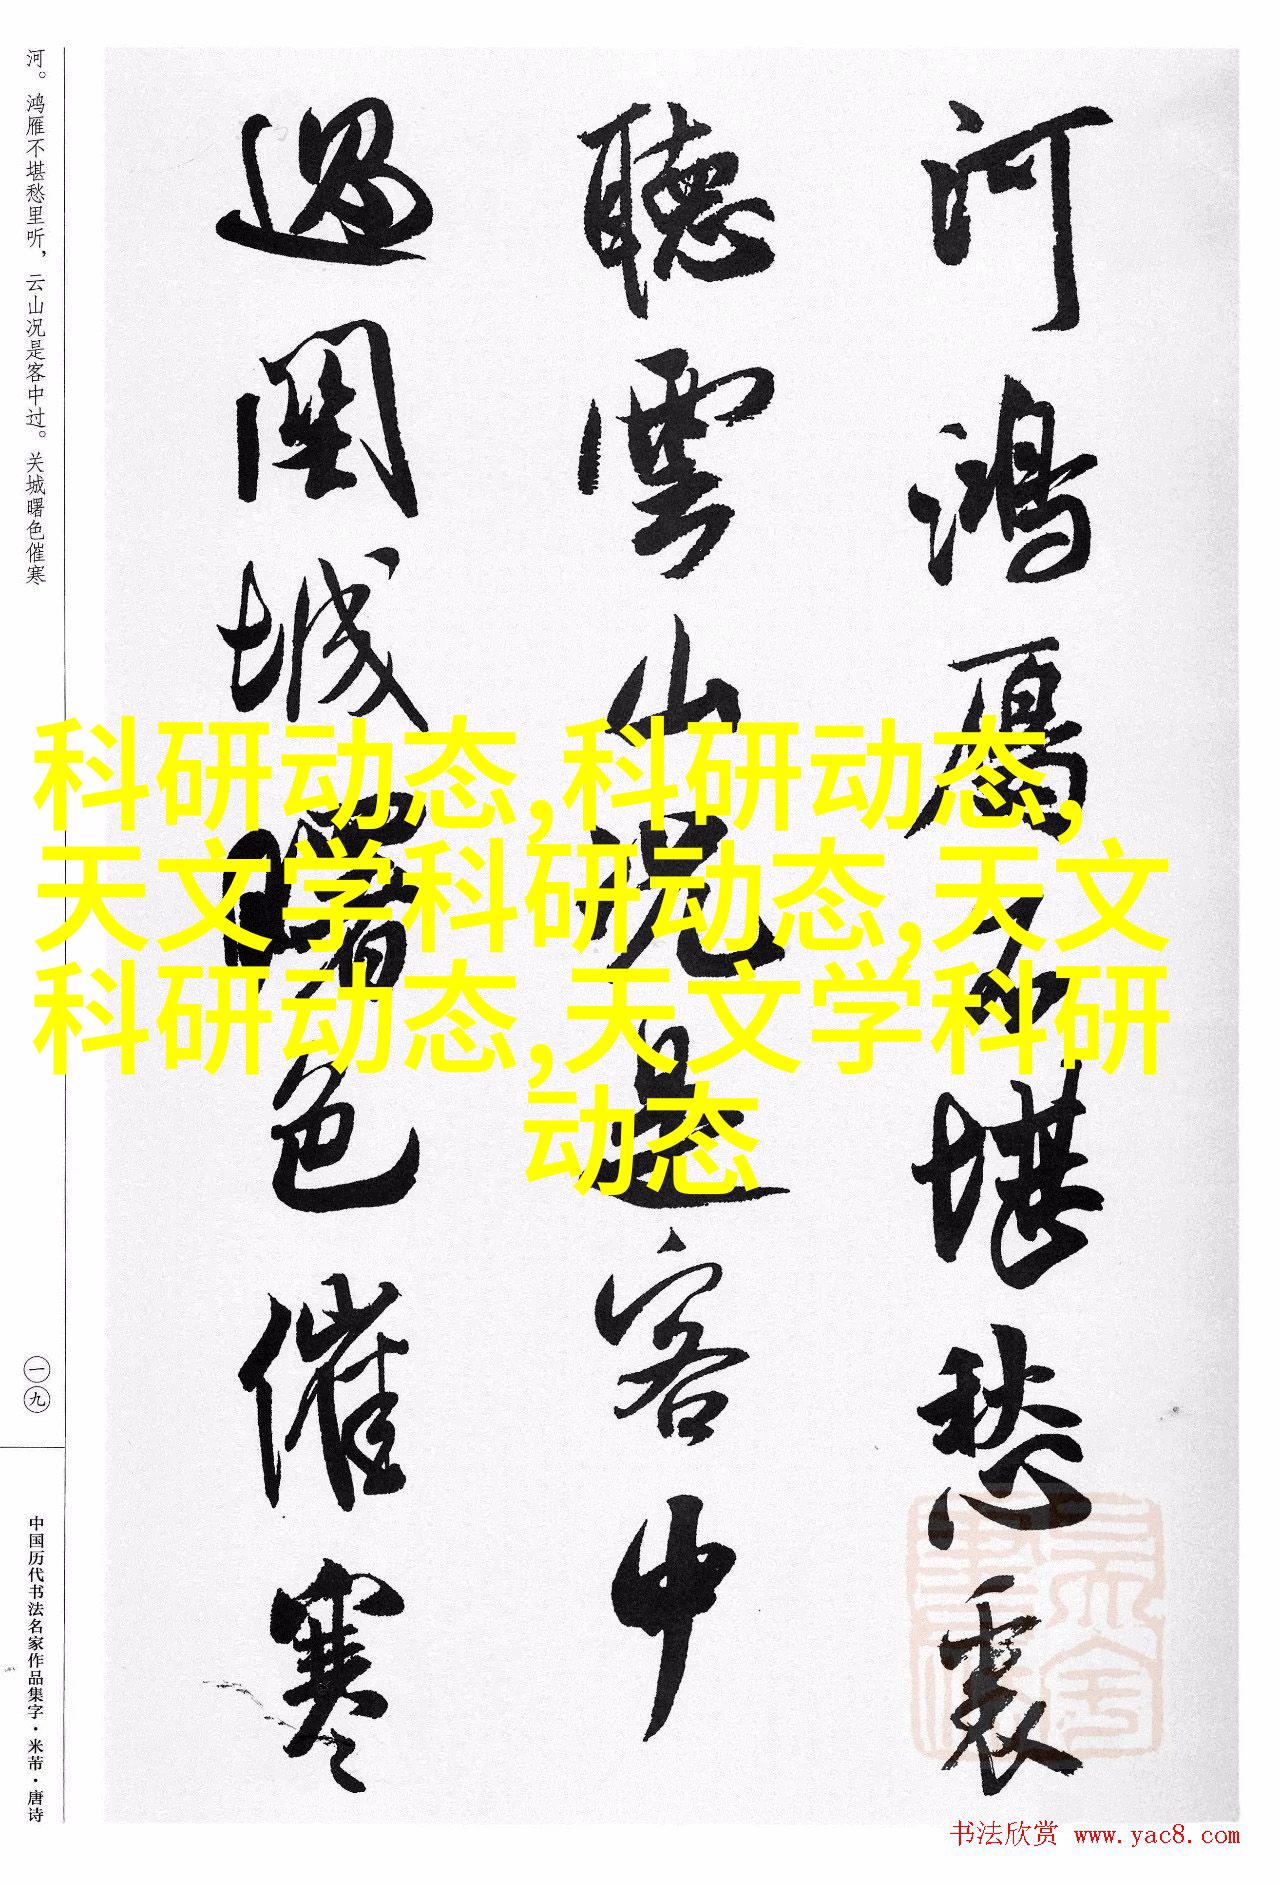 河鴻雁不堪愁裏
聽雲山況是客中
過關城曙色催寒
河。鸿雁不堪愁里听，云山况是客中过。关城曙色催寒
一九
中国历代书法名家作品集字·米芾·唐诗
科研动态,科研动态,
天文学科研动态,天文
科研动态,天文学科研
动态
书法欣赏 www.yac8.com